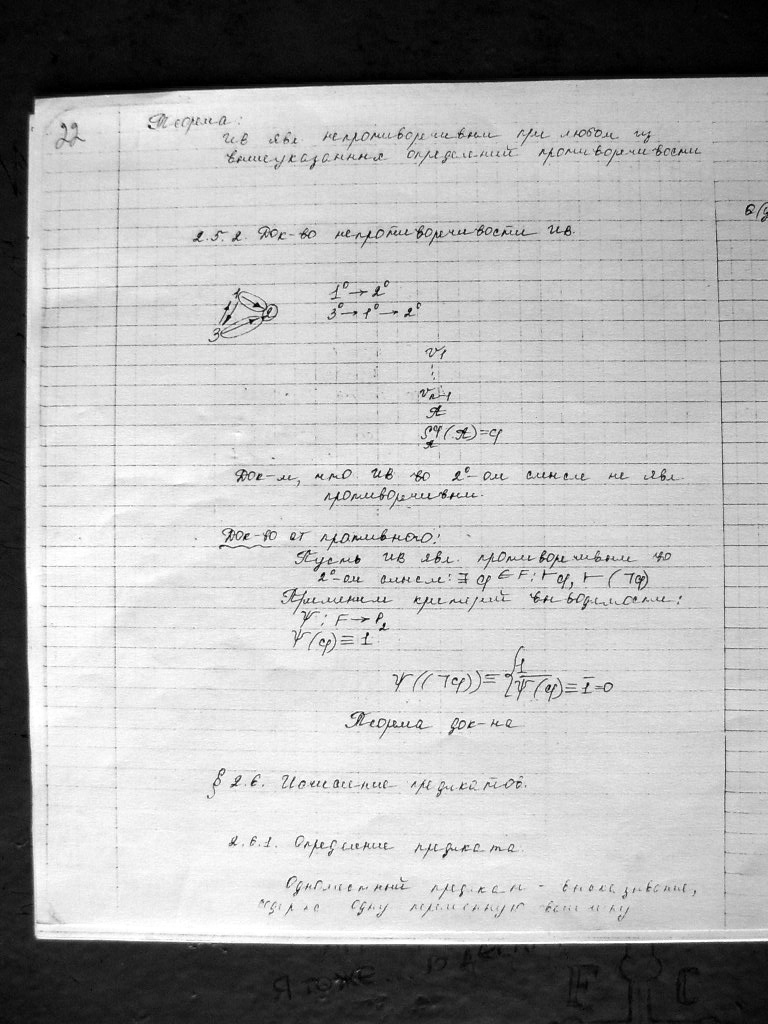 22
Теорема:
ИВ явл непротиворечивым при любом из
вышеуказанных определений противоречивости
2.5.2. Док-во непротиворечивости ИВ.
1 2 3
1⁰ → 2⁰
3⁰ → 1⁰ → 2⁰
v₁
⋮
vₙ₋₁
A
(A) = φ
Док-м, что ИВ во 2⁰-ом смысле не явл.
противоречивым.
Док-во от противного:
Пусть ИВ явл. противоречивым во
2⁰-ом смысле: ∃ φ ∈ F: ⊢ φ, ⊢ (¬φ)
Применим критерий выводимости:
Ψ: F → P₂
Ψ(φ) ≡ 1
Ψ((¬φ)) ≡ { 1
Ψ(φ) ≡ 1̄ = 0
Теорема док-на
§ 2.6. Исчисление предикатов.
2.6.1. Определение предиката
Одноместный предикат - высказывание,
одну переменную величину
Я тоже...
E C